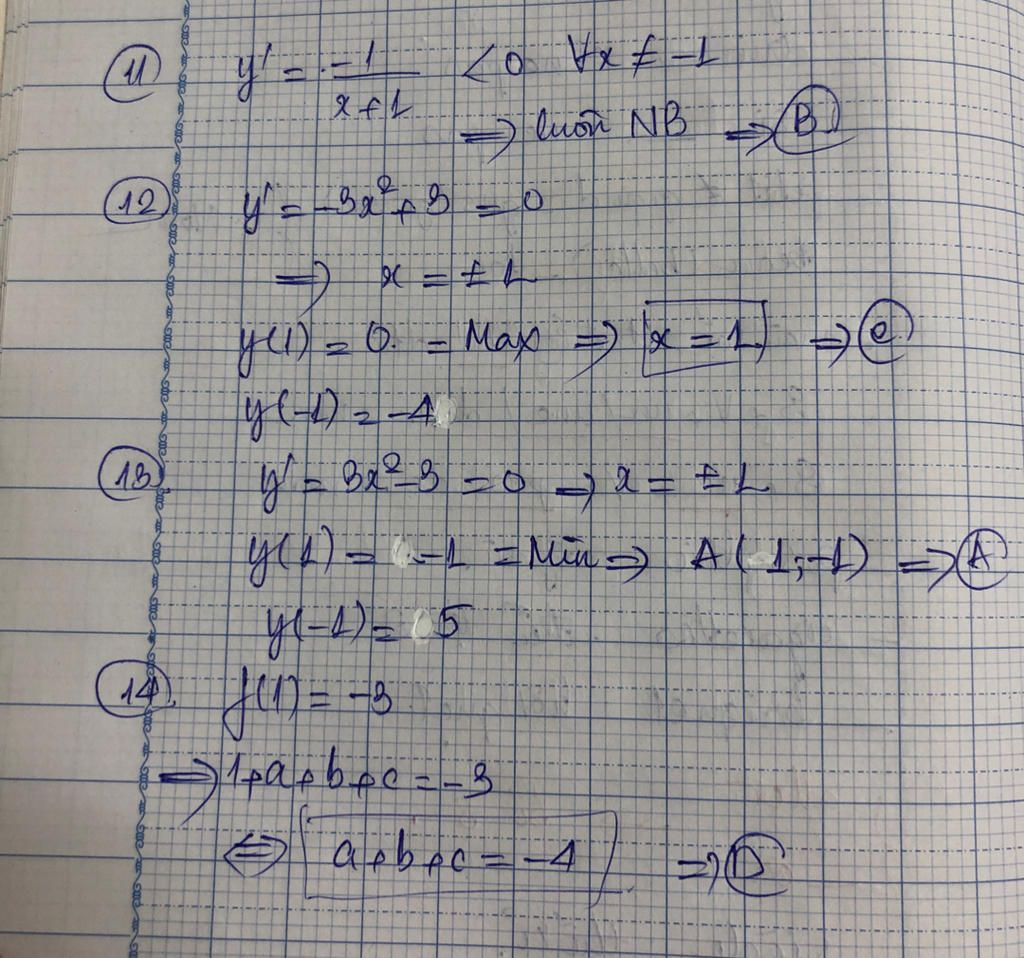 11 y' = -1/(x+1) < 0 ∀x ≠ -1
⇒ luôn NB ⇒ B
12 y' = -3x² + 3 = 0
⇒ x = ±1
y(1) = 0 = Max ⇒ x = 1 ⇒ C
y(-1) = -4
13 y' = 3x² - 3 = 0 ⇒ x = ±1
y(1) = -1 = Min ⇒ A(1;-1) ⇒ A
y(-1) = 5
14 f(1) = -3
⇒ 1+a+b+c = -3
⇔ a+b+c = -4 ⇒ D